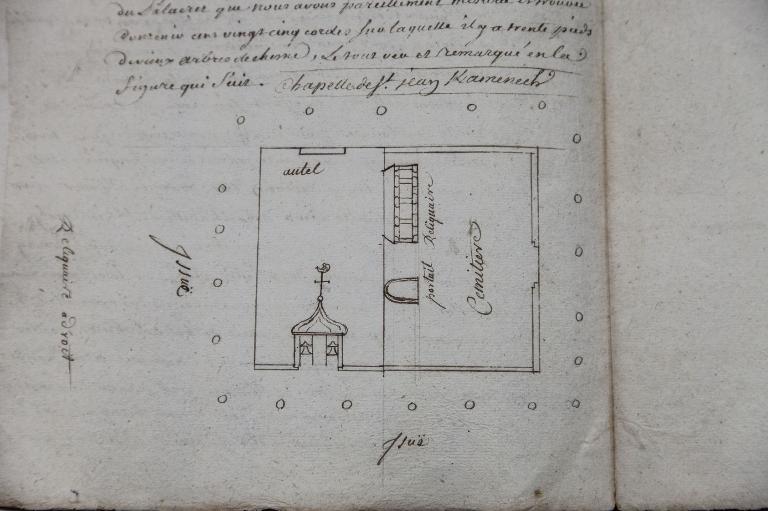 du Placitre que nous avons pareillement mesuré et trouvé
contenir cent vingt cinq cordes sur laquelle il y a trente pieds
de vieux arbres de chesne, Le tout veu et remarqué en la
figure qui suit. Chapelle de St. Jean Kamenech
autel
Reliquaire
portail
Cemitiere
Jssuë
Reliquaire a Droit
Jssuë